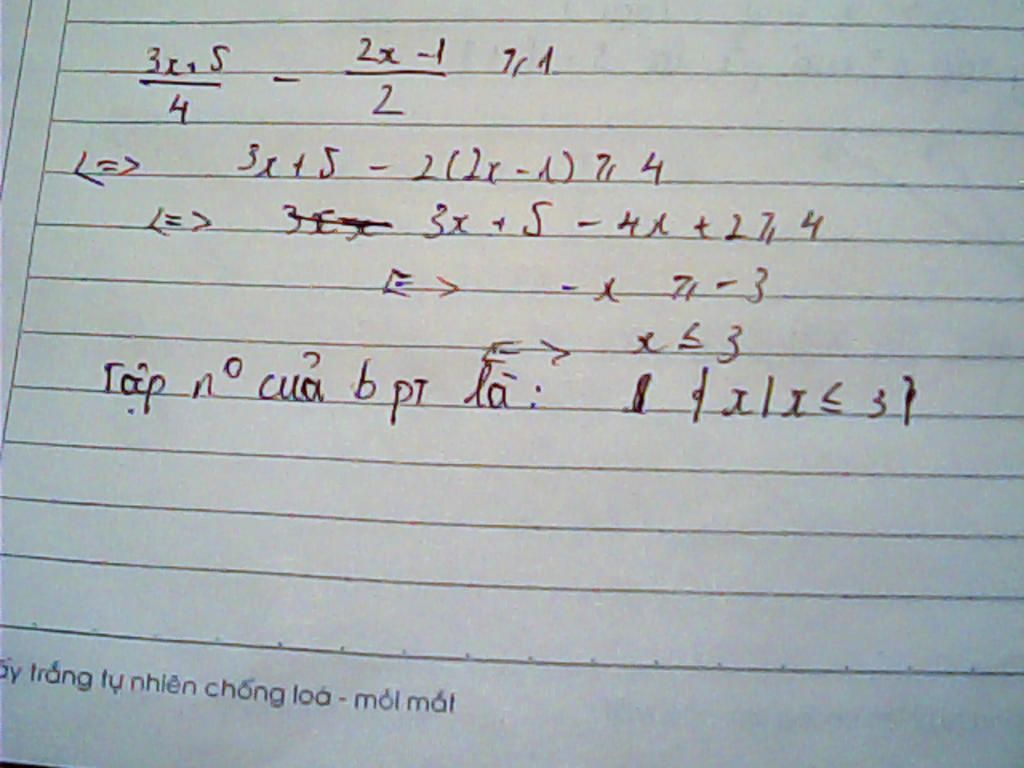 3x+5/4 - 2x-1/2 ≥ 1
<=> 3x+5 - 2(2x-1) ≥ 4
<=> 3x+5 - 4x+2 ≥ 4
<=> -x ≥ -3
<=> x ≤ 3
Tập n⁰ của bpt là: {x|x ≤ 3}
ấy trắng tự nhiên chống loá - mỏi mắt